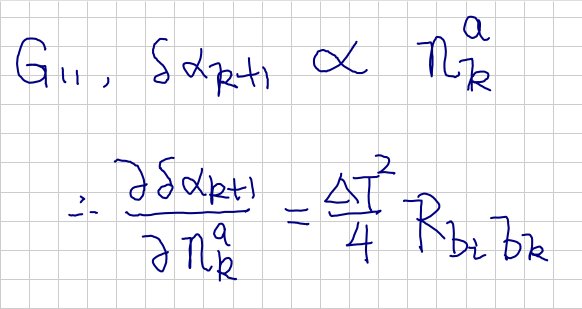 G₁₁, δα_{k+1} ∝ η_k^a
∴ ∂δα_{k+1}/∂η_k^a = ΔT²/4 R_{b_i b_k}